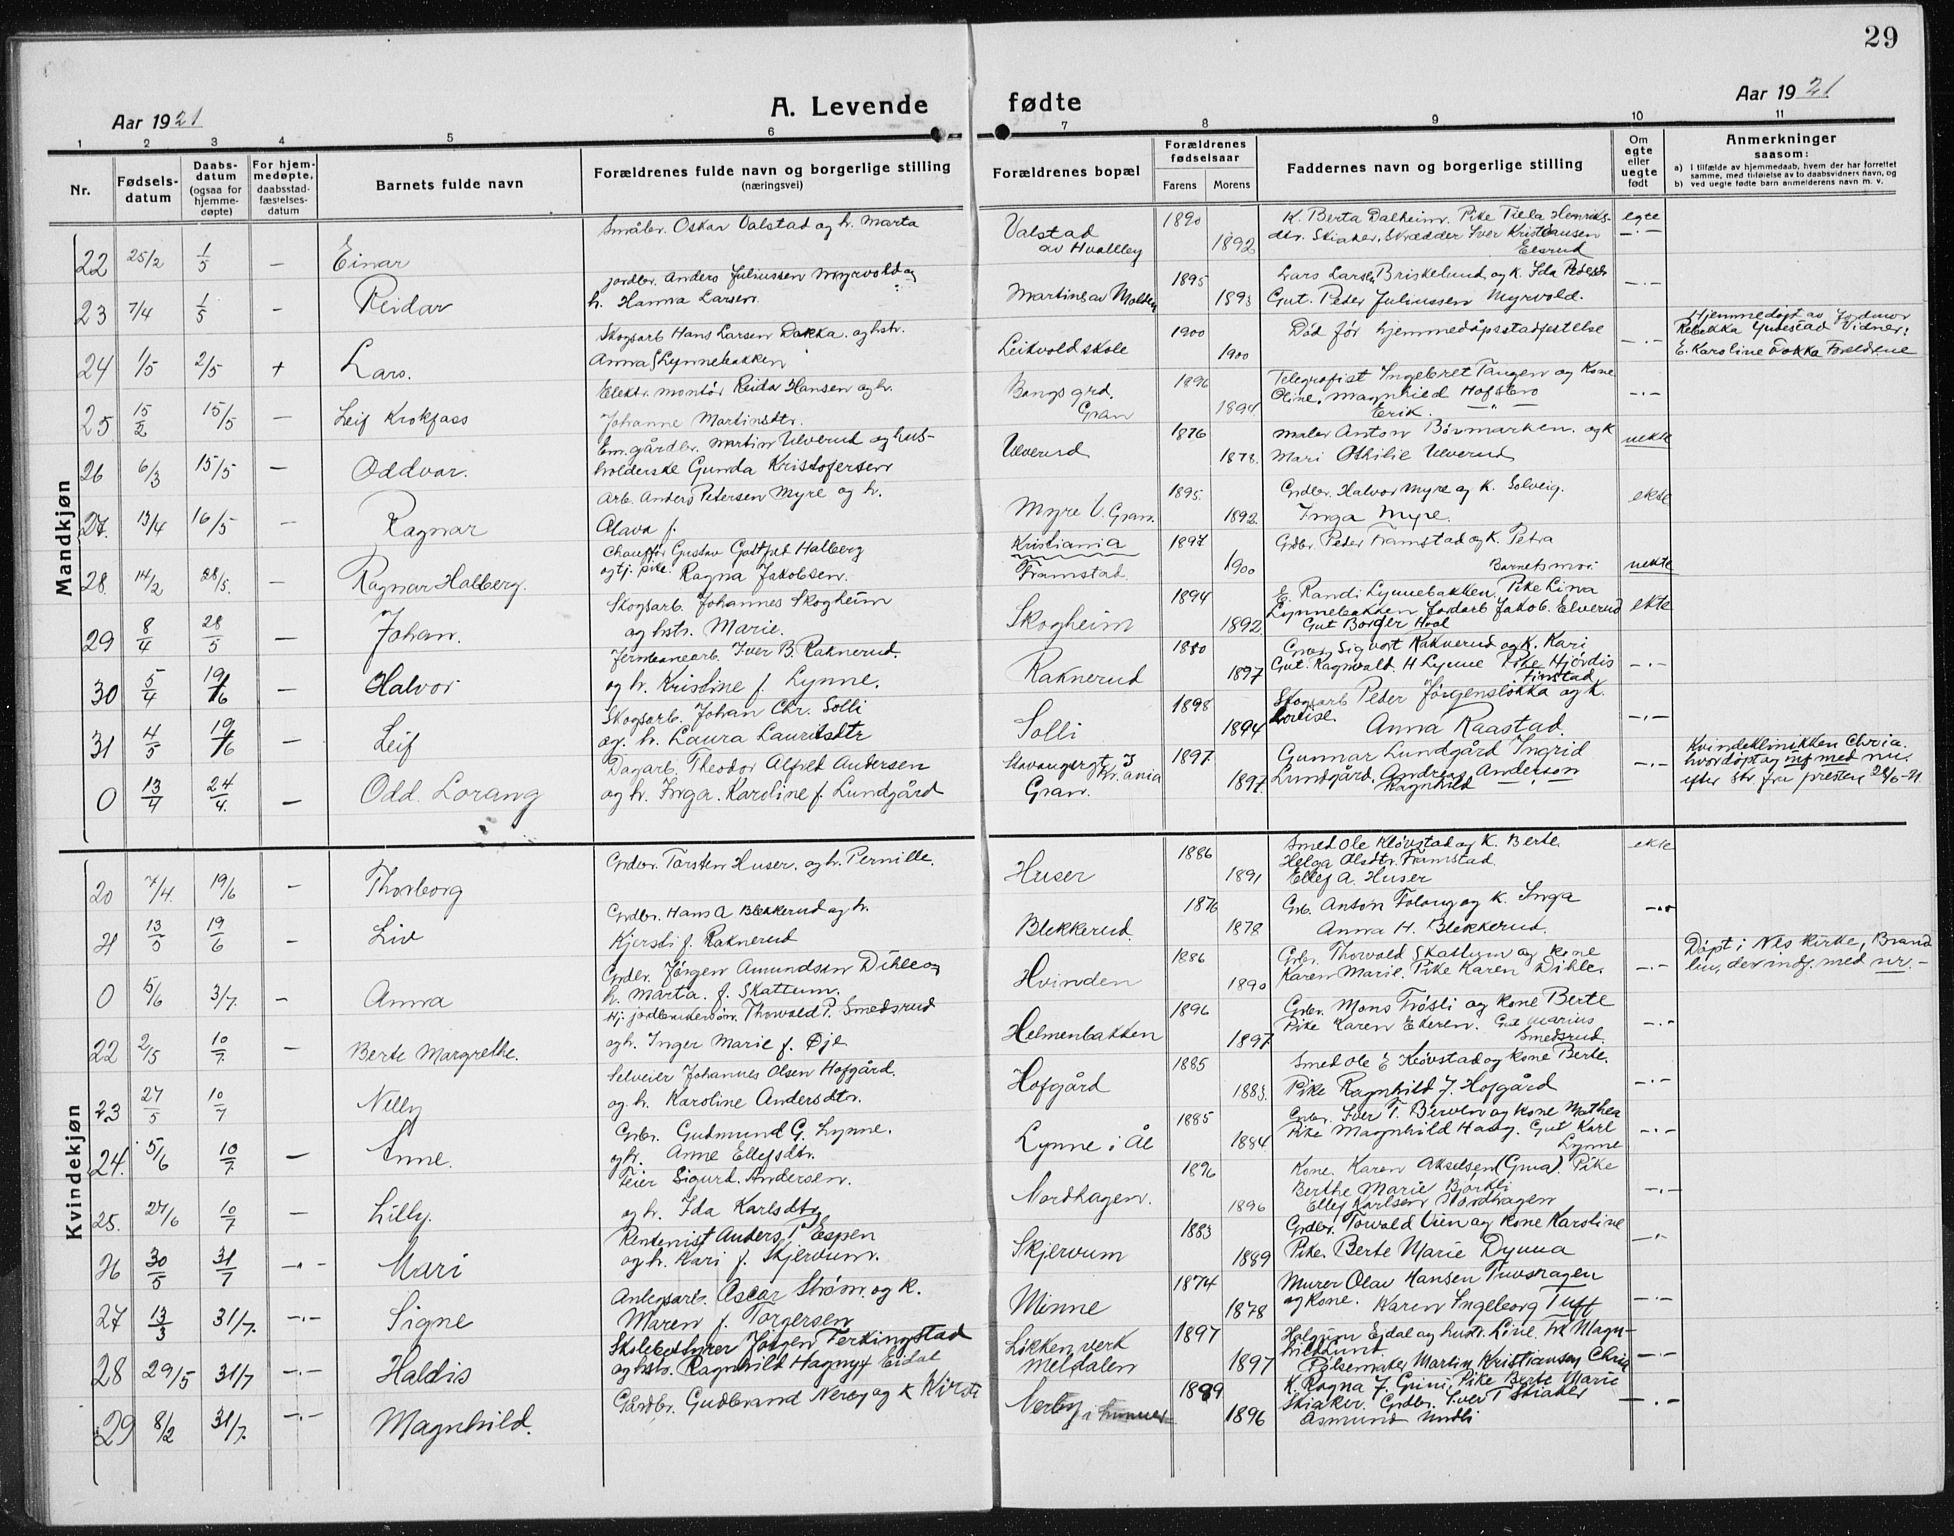 29
Aar 1921
A. Levende fødte
Aar 1921
1 2 3 4 5 6 7 8 9 10 11
Nr.
Fødsels-
datum
Daabs-
datum
(ogsaa for
hjemme-
døpte)
For hjem-
medøpte,
daabsstad-
fæstelses-
datum
Barnets fulde navn
Forældrenes fulde navn og borgerlige stilling
(næringsvei)
Forældrenes bopæl
Forældrenes
fødselsaar
Farens Morens
Faddernes navn og borgerlige stilling
Om
egte
eller
uegte
født
Anmerkninger
saasom:
a) I tilfælde av hjemmedaab, hvem der har forrettet
samme, med tilføielse av to daabsvidners navn, og
b) ved uegte fødte barn anmelderens navn m. v.
Mandkjøn
Småbr. Oskar Valstad og h. Marta
22 25/2 1/5 — Einar
Valstad
av Hvalleby
1890 1892
K. Berta Dalheim. Pike Tilla Henriks-
dtr. Skiaker, Skrædder Iver Kristiansen
Elsrud
egte
jordbr. Anders Juliussen Myrvold og
23 7/4 1/5 - Reidar h. Hanna Larsen
Martine av Molden
1895 1893
Lars Larsen Briskelund og K. Ida Pedersdtr
Gut. Peder Juliussen Myrvold.
—·—
Skogsarb Hans Larsen Dokka. og hstr.
24 1/5 2/5 + Lars. Anna f Lynnebakken
Leikvoldskole
1900 1900
Død før hjemmedåpsstadfestelse
—·—
Hjemmedøpt av Jordmor
Rebekka Vidner:
E. Karoline Dokka Foreldrene
Elektr. montør Reidar Hansen og h.
25 15/2 15/5 — Leif Krokfass Johanne Martinsdtr.
Bangs grd.
Gran
1896 1894
Telegrafist Ingebret Tangen og Kone
Oline, Magnhild Hofsbro
Erik. —"—
—·—
Em. gårdbr. Martin Ulverud og hus-
26 6/3 15/5 — Oddvar. holderske Gunda Kristofersen
Ulverud
1876 1878.
Maler Anton Bövmarken. og K
Mari Othilie Ulverud
uekte
Arb. Anders Petersen Myre og h.
27. 13/4 16/5 — Ragnar Olava f.
Myre V. Gran.
1895. 1892.
Grdbr. Halvor Myre og K. Solveig.
Inga Myre.
ekte
Chauffør Gustav Gottfred Halberg
28. 14/2 28/5. — Ragnar Halberg. og tj. pike Ragna Jakobsen.
Kristiania
Framstad.
1897 1900
Grdbr. Peder Framstad og K. Petra
Barnets mor.
uekte
Skogsarb. Johannes Skogheim
29 8/4 28/5 — Johan. og hstr. Marie.
Skogheim
1894 1892
E. Randi Lynnebakken, Pike Lina
Lynnebakken Jordarb Jakob. Elverud
Gut Borger Hval
ekte
Jernbanearb. Iver B. Raknerud.
30 5/4 19/6 — Halvor og h. Kristine f. Lynne.
Raknerud
1880 1897
Grdbr. Sigvart Raknerud og K. Kari
Gut. Ragnvald H Lynne Pike Hjördis
Finstad
—·—
Skogsarb. Johan Chr. Solli
31 4/5 19/6 — Leif og. h. Laura Lauritsdtr
Solli
1898 1894
Skogsarb Peder Jörgensløkka og K.
Lovise. Anna Raastad.
—·—
Dagarb. Theodor Alfred Andersen
0 13/4 24/4. — Odd. Lorang og h. Inga. Karoline f. Lundgård
Stavangergt 3
Kr.ania
Gran.
1897. 1897.
Gunnar Lundgård Ingrid
Lundgård, Andreas Anderson
Ragnhild —"—
—·—
Kvindeklinikken Chria.
hvor døpt og inf med nr.
efter Skr. fra presten 28/6-21.
Kvindekjøn
Grdbr. Torsten Huser. og h. Pernille.
20 7/4. 19/6 — Thorborg
Huser
1886 1891
Smed Ole Kløvstad og K. Berte
Helga Olsdtr. Framstad
Ellef A. Huser
ekte
Grdbr. Hans A Blekkerud og h.
21 13/5 19/6 — Liv Kjersti f. Raknerud
Blekkerud.
1876 1878
Grb. Anton Folang og K. Inga
Anna H. Blekkerud.
—·—
Grdbr. Jörgen Amundsen Dihle og
0 5/6 3/7. — Anna h. Marta. f. Skattum.
Hvinden
1886 1890
Grbr. Thorvald Skattum og Kone
Karen Marie. Pike Karen Dihle.
—·—
Døpt i Nes Kirke, Brand
bu, der indf. med nr. —
Hj. jordbrukersøn. Thorvald P. Smedsrud
22 2/5 10/7. — Berte Margrethe. og h. Inger Marie f. Øje
Helmenbakken
1896 1897
Grbr. Mons Trösli og Kone Berte
Pike Karen Ekeren. Gut Marius
Smedsrud.
—·—
Selveier Johannes Olsen Hofgård.
23 27/5 10/7 Nelly og h. Karoline Andersdtr.
Hofgård
1885 1883.
Smed Ole E Kløvstad og Kone Berte.
Pike Ragnhild J. Hofgård
—·—
Grbr. Gudmund G. Lynne.
24. 5/6 10/7 — Anne. og h. Anne Ellefsdtr.
Lynne i Ål
1885 1884
Grbr. Iver T. Berven og Kone Mathea
Pike Magnhild Haug. Gut Karl
Lynne
—·—
Feier Sigurd. Andersen.
25. 27/6 10/7 — Lilly. og h. Ida Karlsdtr
Nordhagen.
1896 1896
Kone. Karen Akselsen (Grua). Pike
Berthe Marie Björkli
Ellef Karlsen Nordhagen
—·—
Rentenist Anders T. Espen
26 30/5 31/7 —·— Mari og h. Kari f. Skjervum.
Skjervum
1883 1889
Grdbr. Towald Vien og Kone Karoline
Pike. Berte Marie Dynna
—·—
Anlegsarb. Oscar Strøm. og K.
27 13/3 31/7. —·— Signe Maren f. Torgersen
Minne
1874 1878
Murer Olav Hansen Tuvshagen
og Kone. Karen Ingeborg Tuft
—·—
Skolebestyrer Jörgen Ferkingstad
28 29/5 31/7 —·— Haldis og hstr. Ragnhild Hagny f Eidal
Løkken verk
Meldalen
1897 1897
Halgrim Ejdal og hustr. Line. Frk Magn-
hild Lund.
Pølsemaker Martin Kristiansen Chria
—·—
Gårdbr. Gudbrand Nerby og K Kirsti
29 8/2 31/7. —·— Magnhild.
Nerby i
1889 1896
K. Ragna J. Grini, Pike Berte Marie
Skiaker. Grdbr. Iver T Skiaker
Asmund Undli
—·—